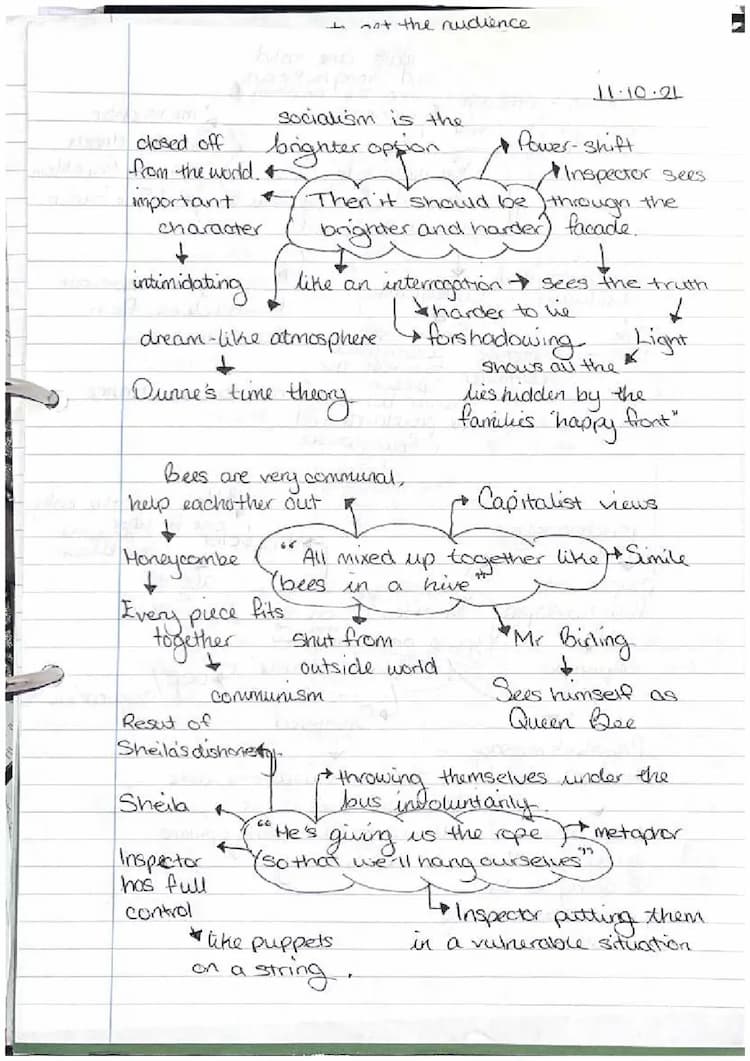 not the audience
11.10.21
socialism is the
brighter option
closed off
from the world.
important
character
intimidating
Power-shift
Inspector sees
through the
facade.
Then it should be
brighter and harder
like an interrogation → sees the truth
harder to lie
forshadowing
Light
shows all the
lies hidden by the
families "happy front"
dream-like atmosphere
Dunne's time theory
Bees are very communal,
help eachother out
Honeycombe
Every piece fits
together
communism
Capitalist views
"All mixed up together like
bees in a hive"
Simile
shut from
outside world
Mr Birling
Sees himself as
Queen Bee
Result of
Sheila's dishonesty.
throwing themselves under the
bus involuntarily.
Sheila
"He's giving us the rope
so that we'll hang ourselves"
metaphor
Inspector
has full
control
like puppets
on a string.
Inspector putting them
in a vulnerable situation